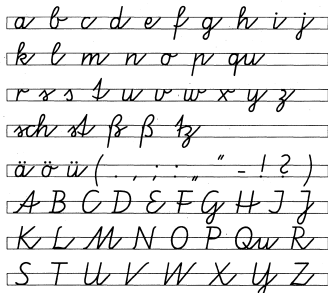 a b c d e f g h i j
k l m n o p qu
r s s t u v w x y z
sch st ß ß tz
ä ö ü ( . , ; : „ “ - ! ? )
A B C D E F G H I J
K L M N O P Qu R
S T U V W X Y Z